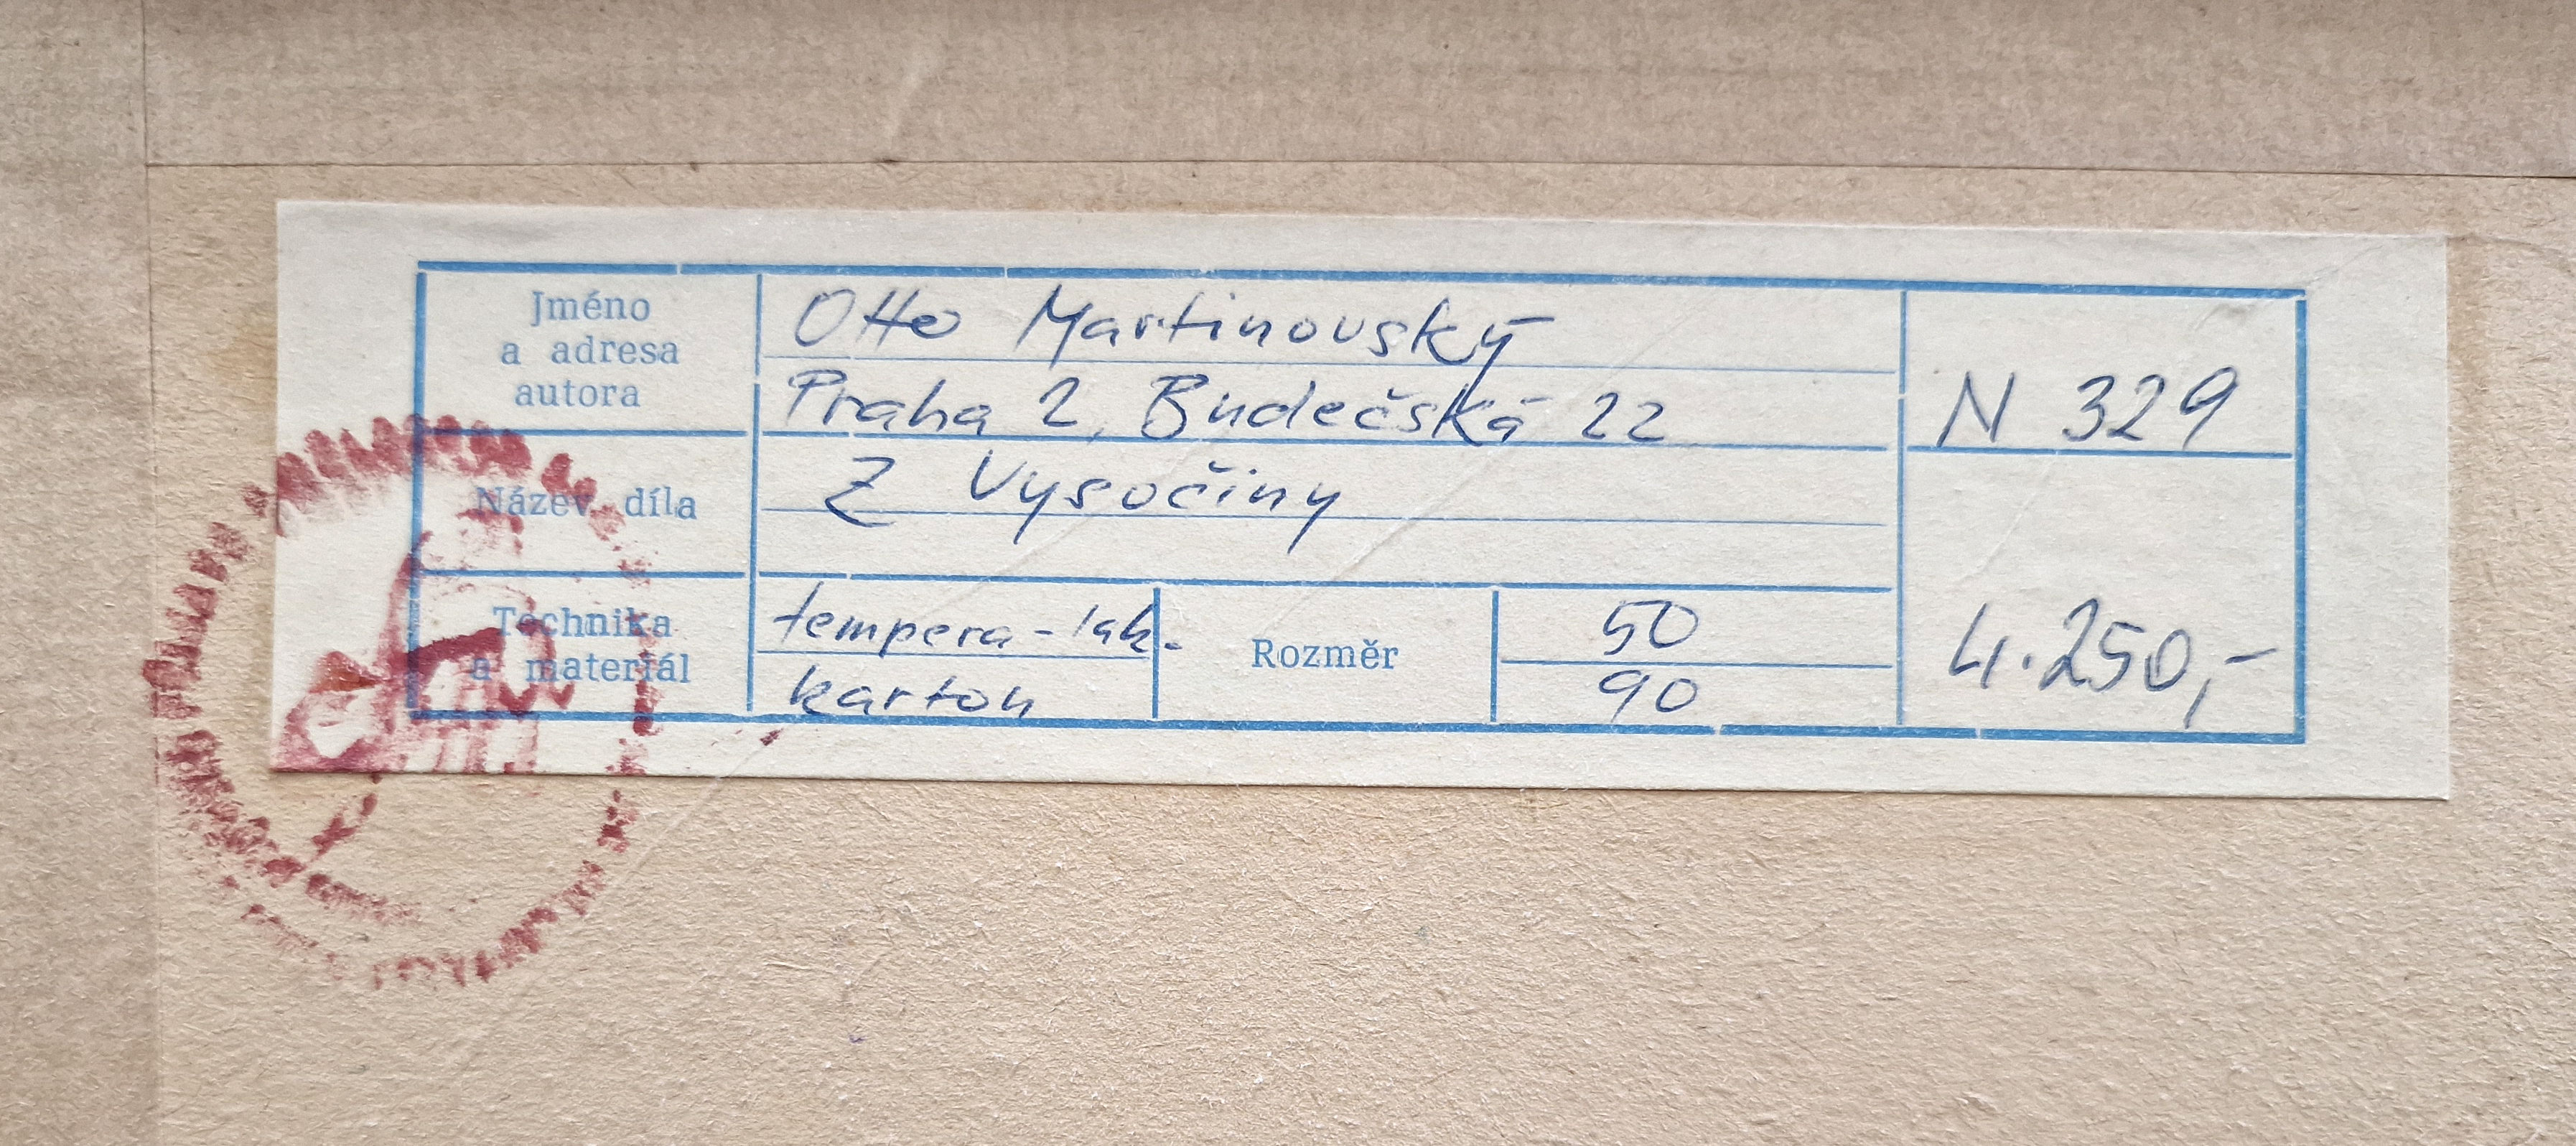 Jméno
a adresa
autora
Otto Martinovský
Praha 2, Budečská 22
N 329
Název díla
Z Vysočiny
Technika
a materiál
tempera-lak.
karton
Rozměr
50
90
4.250,-